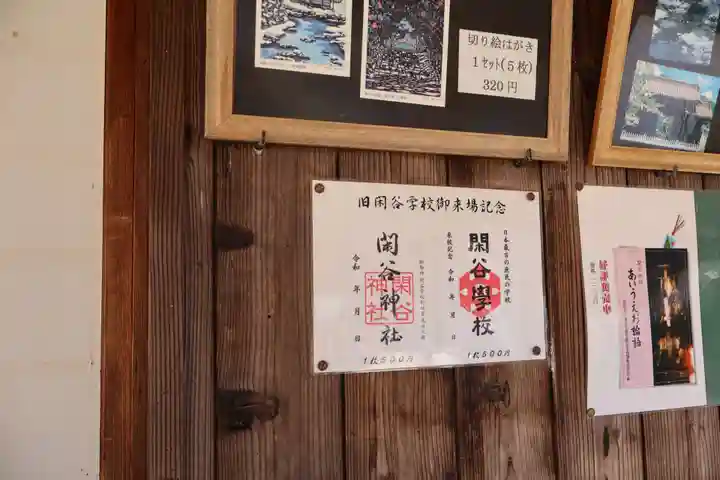 切り絵はがき
1セット(5枚)
320円
旧閑谷学校御来場記念
日本最古の庶民の学校
閑谷學校
来校記念 令和 年 月 日
1枚500円
閑谷神社
閑谷神社
令和 年 月 日
1枚500円
好評発売中
あいうえお論語